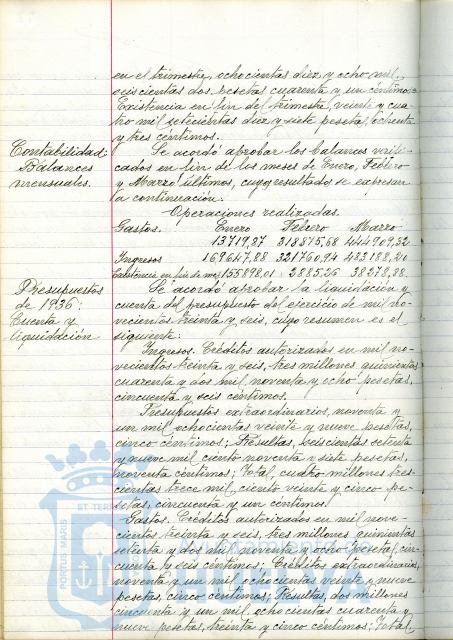 en el trimestre, ochocientas diez y ocho mil,
seiscientas dos pesetas cuarenta y un céntimos.
Existencia en fin del trimestre, veinte y cua
tro mil setecientas diez y siete pesetas, ochenta
y tres céntimos.
Contabilidad:
Balances
mensuales.
Se acordó aprobar los balances verifi-
cados en fin de los meses de Enero, Febrero
y Marzo últimos, cuyo resultado se expresan
a continuación.
Operaciones realizadas.
Gastos. Enero Febrero Marzo
13719,87 318875,68 444909,32
Ingresos 169647,88 321760,94 483188,20
Existencia en fin de mes 155898,01 2885,26 38278,88.
Presupuestos
de 1936:
Cuenta y
liquidación
Se acordó aprobar la liquidación y
cuenta del presupuesto del ejercicio de mil no-
vecientos treinta y seis, cuyo resumen es el
siguiente:
Ingresos. Créditos autorizados en mil no-
vecientos treinta y seis, tres millones quinientas
cuarenta y dos mil noventa y ocho pesetas,
cincuenta y seis céntimos.
Presupuestos extraordinarios, noventa y
un mil ochocientas veinte y nueve pesetas,
cinco céntimos; Resultas, seiscientas setenta
y nueve mil ciento noventa y siete pesetas,
noventa céntimos; Total, cuatro millones tres-
cientas trece mil, ciento veinte y cinco pe-
setas, cincuenta y un céntimos.
Gastos. Créditos autorizados en mil nove-
cientos treinta y seis, tres millones quinientas
setenta y dos mil noventa y ocho pesetas, cin-
cuenta y seis céntimos; Créditos extraordinarios,
noventa y un mil ochocientas veinte y nueve
pesetas, cinco céntimos; Resultas, dos millones
cincuenta y un mil, ochocientas cuarenta y
nueve pesetas, treinta y cinco céntimos; Total,
PORTUS MARIS ET TERRA